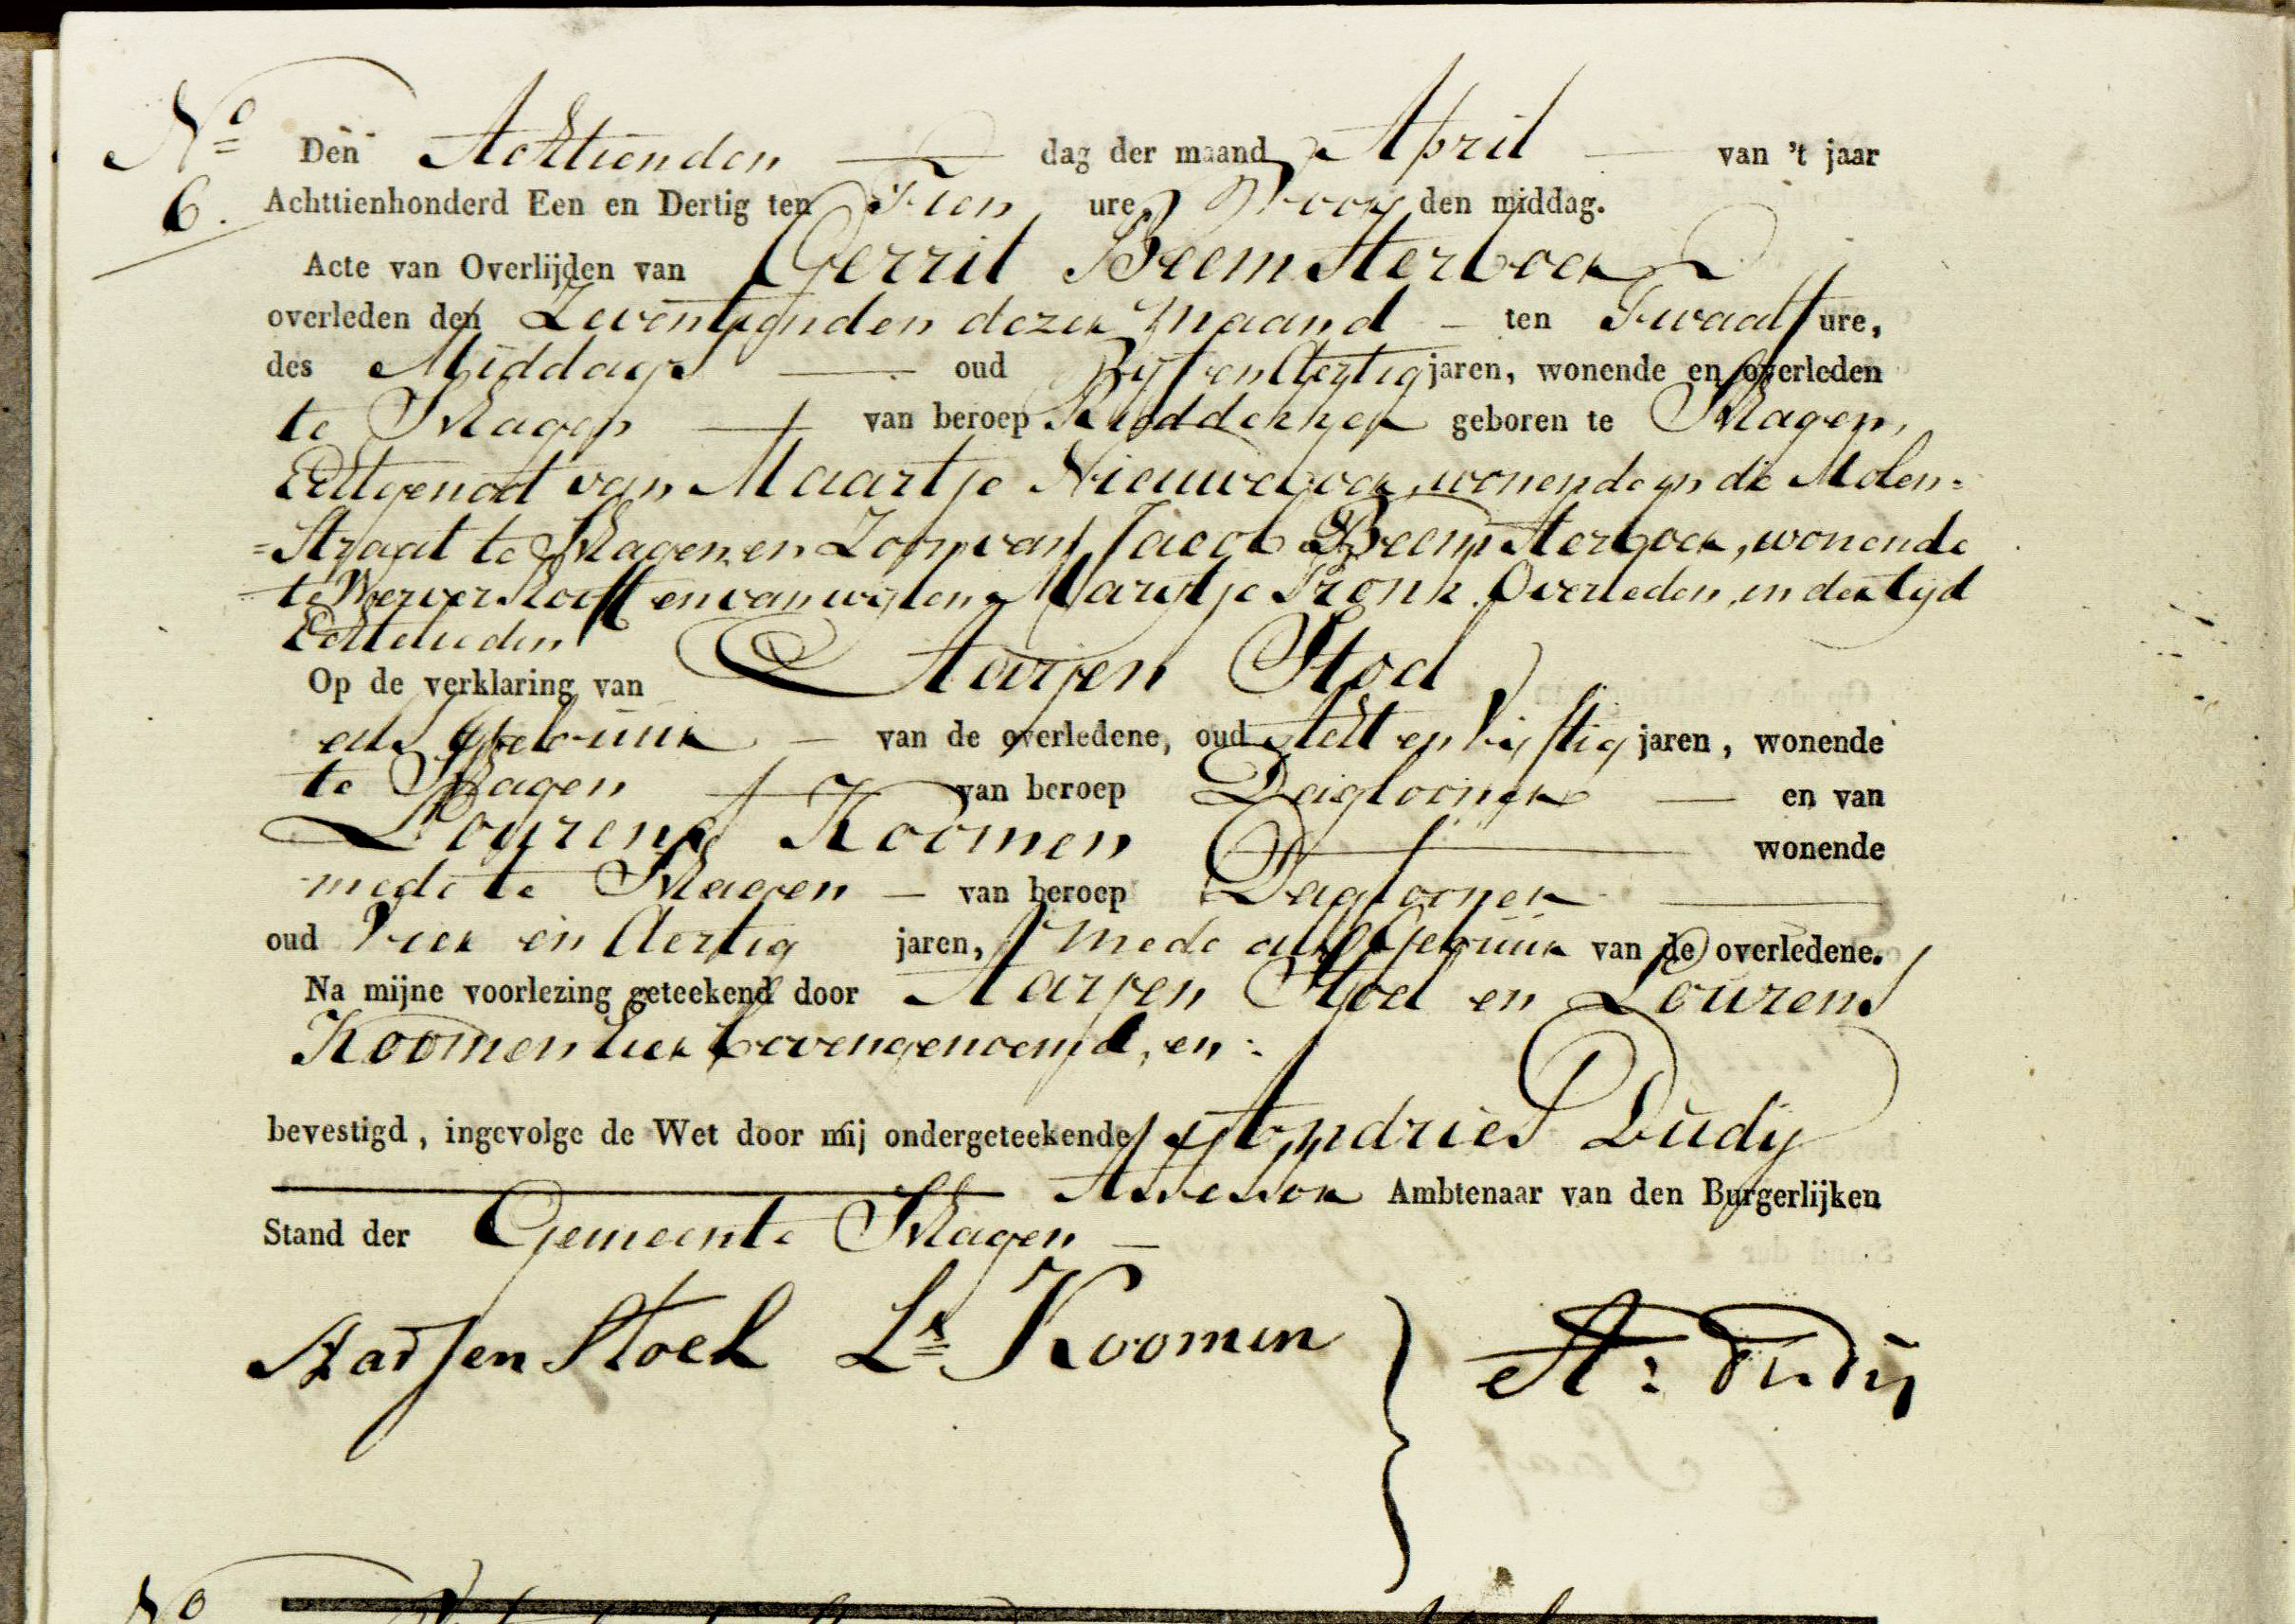 Nº
6.
Den Achttienden dag der maand April van 't jaar
Achttienhonderd Een en Dertig ten Tien ure, Voor den middag.
Acte van Overlijden van Gerrit Beemsterboer
overleden den Zeventienden dezer maand ten Twaalf ure,
des Middags oud Vijf en dertig jaren, wonende en overleden
te Schagen van beroep geboren te Schagen,
Echtgenoot van Maartje Nieuweboer, wonende in de Molen=
=Straat te Schagen, en Zoon van Jacob Beemsterboer, wonende
te Wervershooft en van wijlen Marijtje Pronk Overleden, in der tijd
Echtelieden
Op de verklaring van Aarjen Stoel
als Gebuur van de overledene, oud Acht en vijftig jaren, wonende
te Schagen van beroep Daglooner en van
Lourens Koomen wonende
mede te Schagen van beroep Daglooner
oud Vier en dertig jaren, mede als Gebuur van de overledene.
Na mijne voorlezing geteekend door Aarjen Stoel en Lourens
Koomen hier bovengenoemd, en
bevestigd, ingevolge de Wet door mij ondergeteekende Andries Dudij
Assessor Ambtenaar van den Burgerlijken
Stand der Gemeente Schagen
Aarjen Stoel Ls Koomen As Dudij
Nº